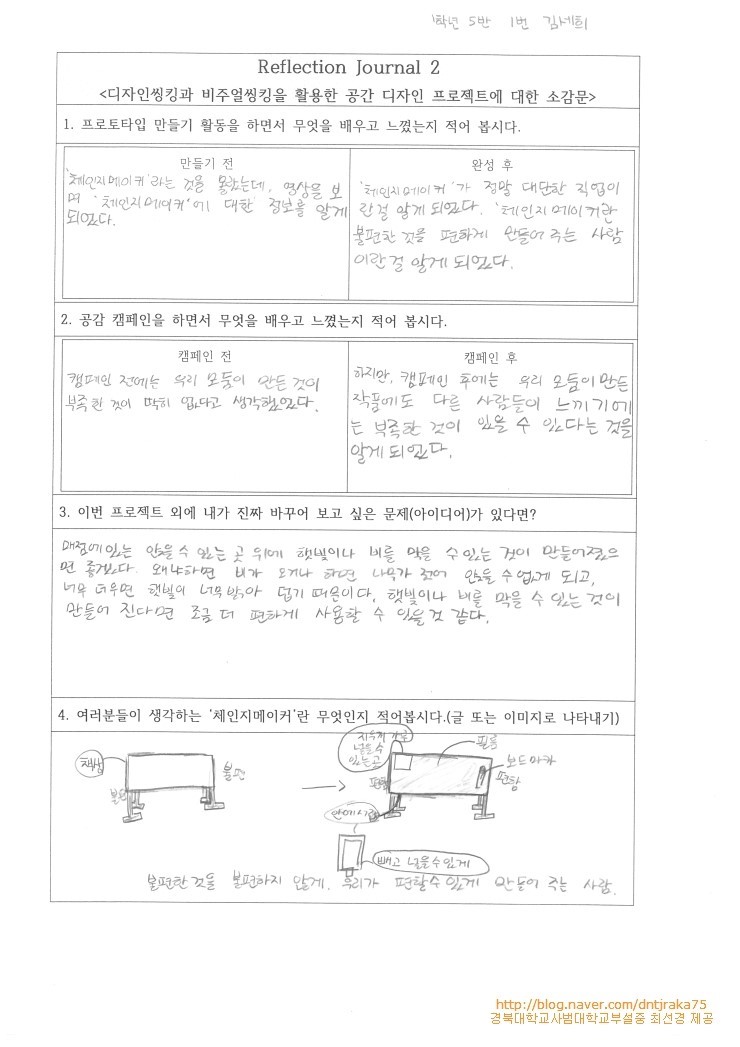 1학년 5반 1번 김세희
Reflection Journal 2
<디자인씽킹과 비주얼씽킹을 활용한 공간 디자인 프로젝트에 대한 소감문>
1. 프로토타입 만들기 활동을 하면서 무엇을 배우고 느꼈는지 적어 봅시다.
만들기 전
'체인지메이커'라는 것을 몰랐는데, 영상을 보
며 '체인지메이커'에 대한 정보를 알게
되었다.
완성 후
'체인지메이커'가 정말 대단한 직업이
란걸 알게 되었다. '체인지메이커란
불편한 것을 편하게 만들어 주는 사람
이란걸 알게 되었다.
2. 공감 캠페인을 하면서 무엇을 배우고 느꼈는지 적어 봅시다.
캠페인 전
캠페인 전에는 우리 모둠이 만든 것이
부족한 것이 딱히 없다고 생각했었다.
캠페인 후
하지만, 캠페인 후에는 우리 모둠이 만든
작품에도 다른 사람들이 느끼기에
는 부족한 것이 있을 수 있다는 것을
알게 되었다.
3. 이번 프로젝트 외에 내가 진짜 바꾸어 보고 싶은 문제(아이디어)가 있다면?
매점에 있는 앉을 수 있는 곳 위에 햇빛이나 비를 막을 수 있는 것이 만들어졌으
면 좋겠다. 왜냐하면 비가 오거나 하면 나무가 젖어 앉을 수 없게 되고,
너무 더우면 햇빛이 너무 밝아 덥기 때문이다. 햇빛이나 비를 막을 수 있는 것이
만들어 진다면 조금 더 편하게 사용할 수 있을 것 같다.
4. 여러분들이 생각하는 '체인지메이커'란 무엇인지 적어봅시다.(글 또는 이미지로 나타내기)
책상
불편
불편
넣을 수
있는곳
필름
보드마카
편함
편함
빼고 넣을 수 있게
불편한 것을 불편하지 않게. 우리가 편할 수 있게 만들어 주는 사람.
http://blog.naver.com/dntjraka75
경북대학교사범대학교부설중 최선경 제공